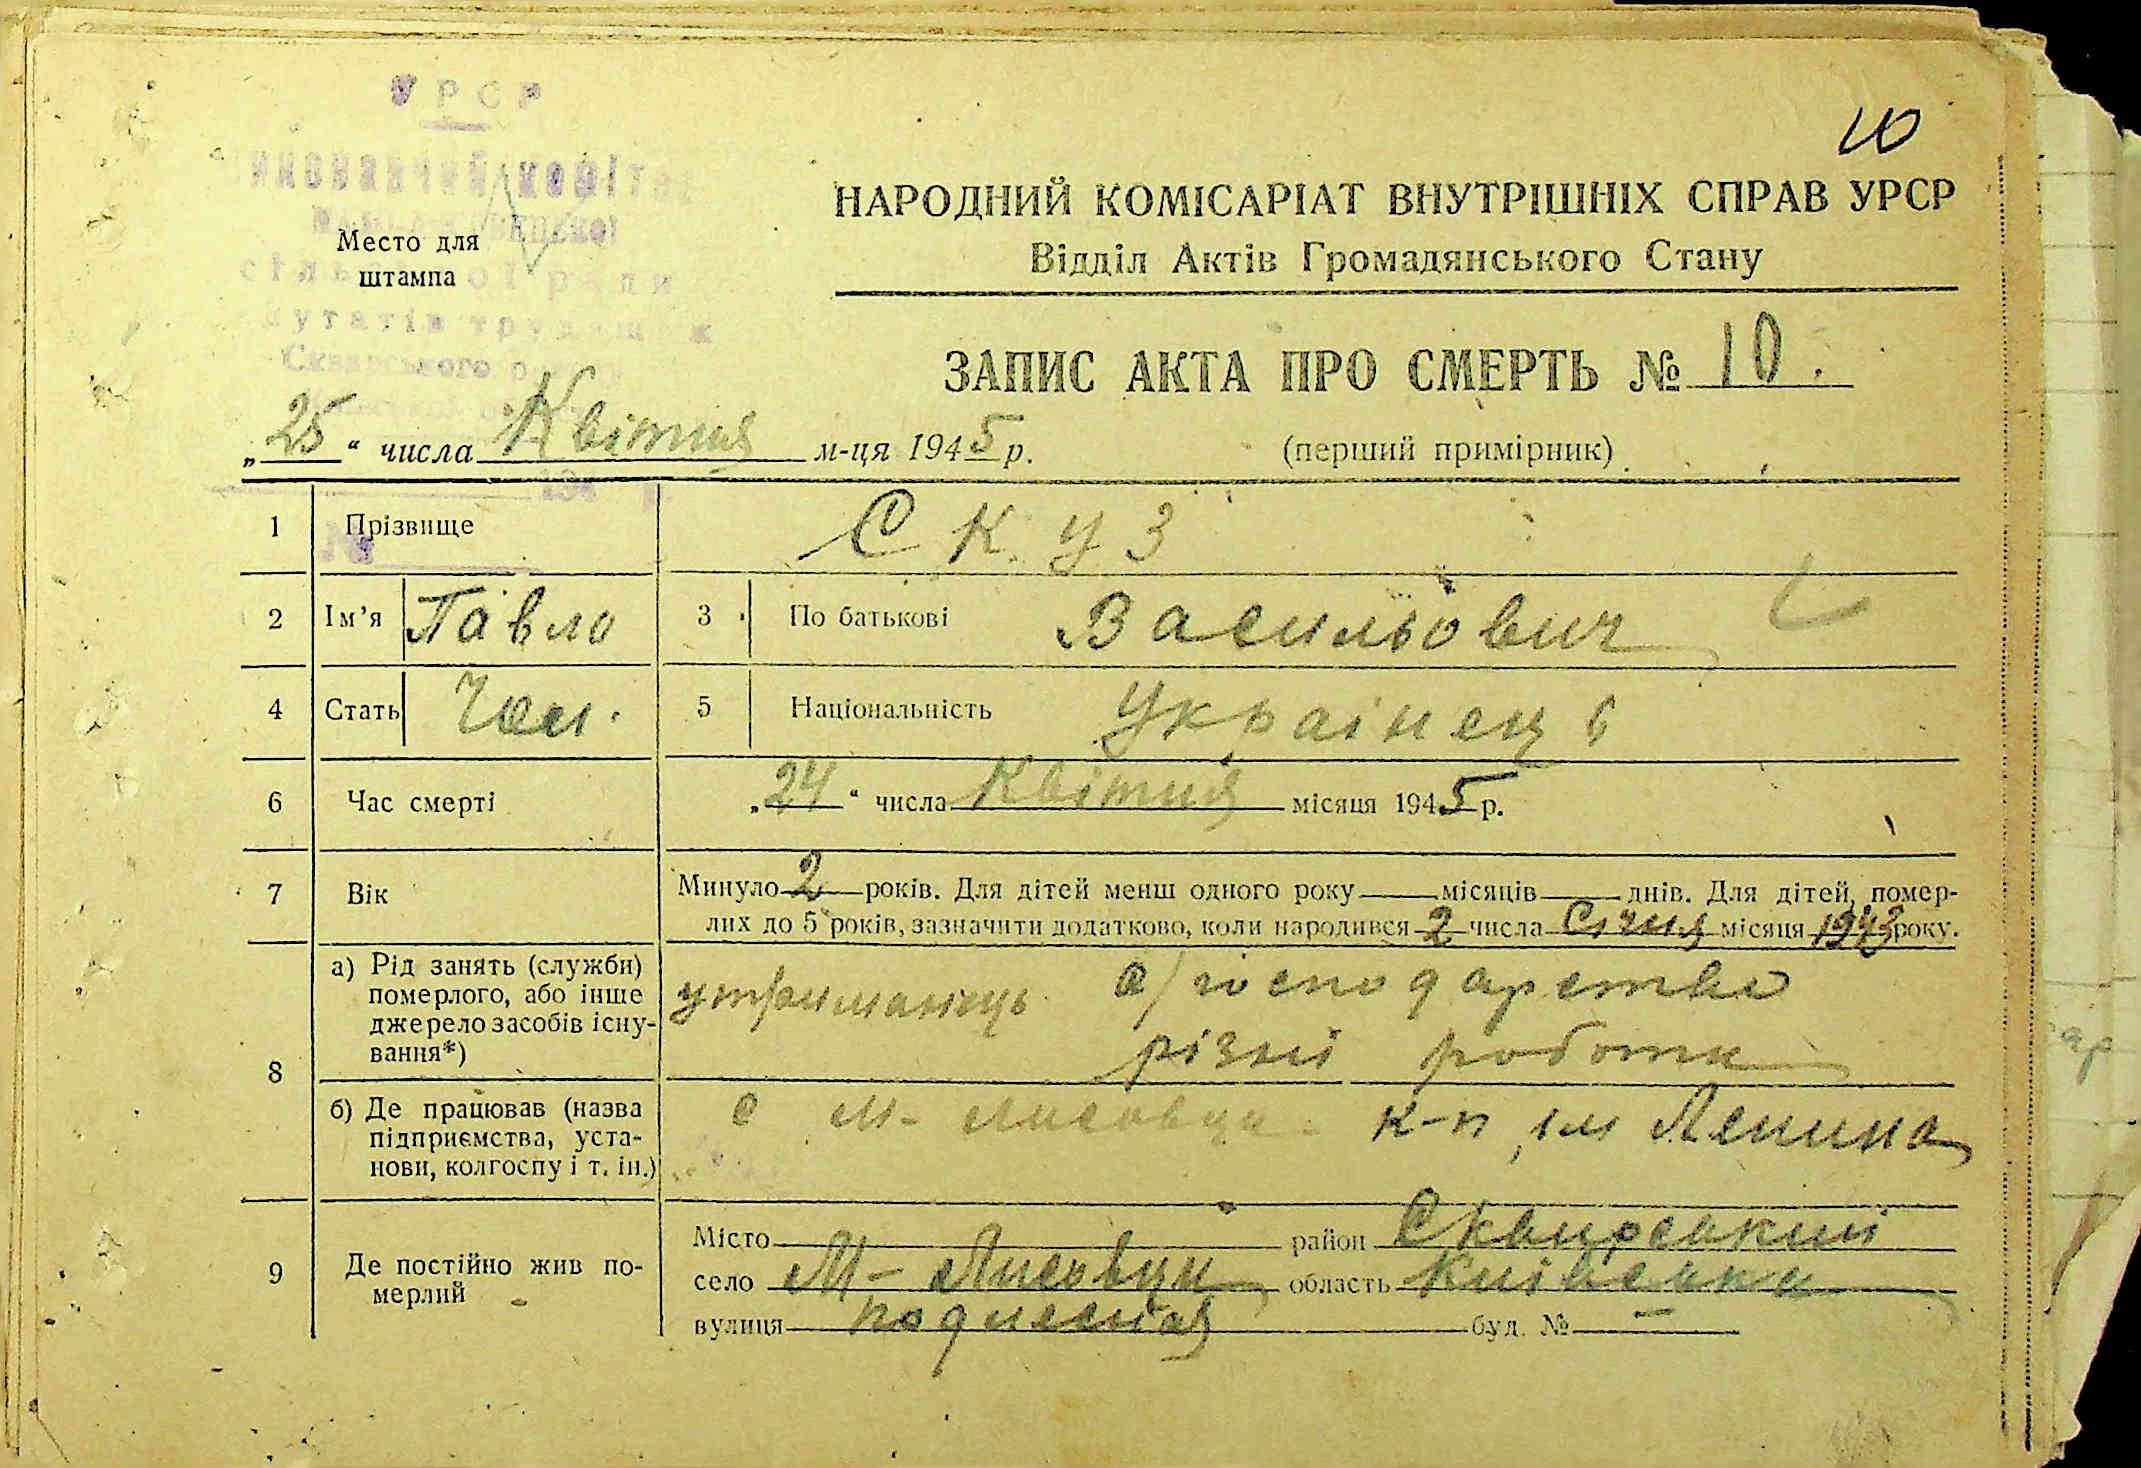 УРСР
10
НАРОДНИЙ КОМІСАРІАТ ВНУТРІШНІХ СПРАВ УРСР
Место для
штампа
Відділ Актів Громадянського Стану
ЗАПИС АКТА ПРО СМЕРТЬ № 10.
„25“ числа Квітня м-ця 1945 р.
(перший примірник)
1 Прізвище СКУЗ
2 Ім’я Павло 3 По батькові Васильович
4 Стать Чол. 5 Національність Украінець
6 Час смерті „24“ числа Квітня місяця 1945 р.
7 Вік Минуло 2 років. Для дітей менш одного року — місяців — днів. Для дітей, помер-
лих до 5 років, зазначити додатково, коли народився 2 числа Січня місяця 1943 року.
8 а) Рід занять (служби)
померлого, або інше
джерело засобів існу-
вання*)
утриманець с/господарства
різні роботи
б) Де працював (назва
підприємства, уста-
нови, колгоспу і т. ін.)
с М-Лисовци к-п ім Ленина
9 Де постійно жив по-
мерлий
Місто район Сквирський
село М-Лисовци область Київська
вулиця буд. № —